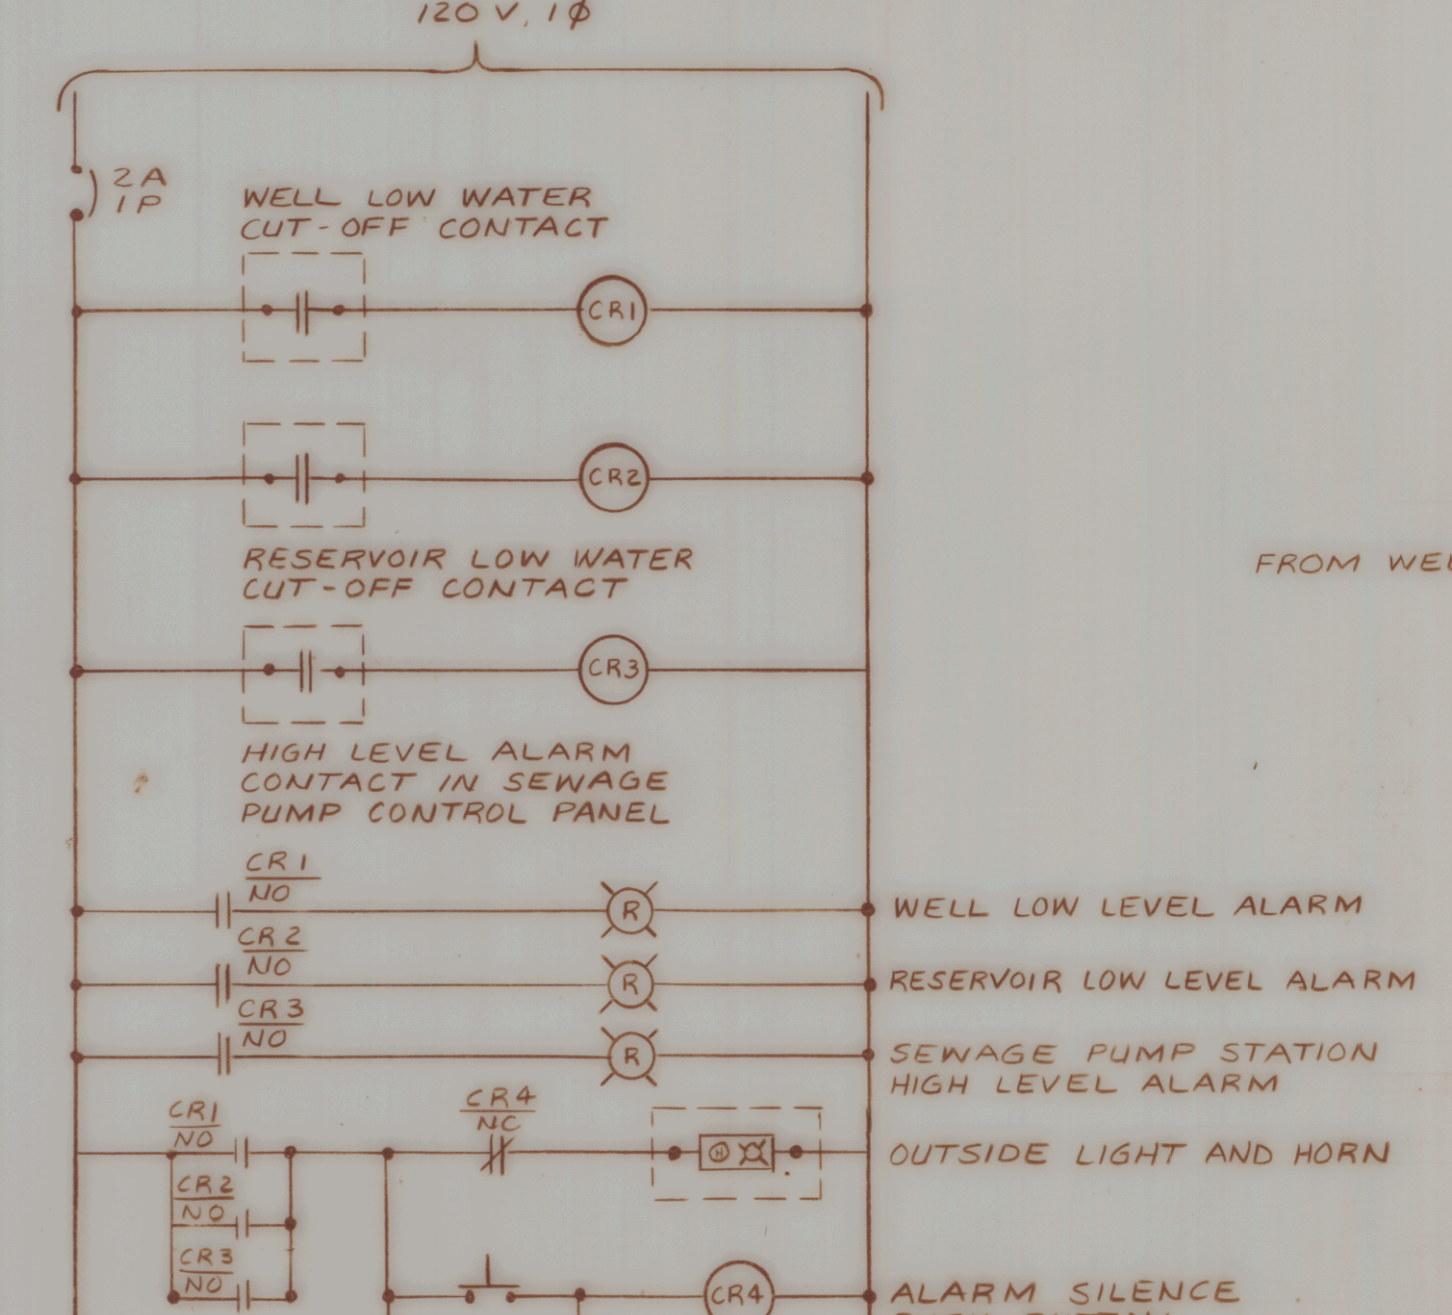 120 V, 1 Ø
2A
1P
WELL LOW WATER
CUT-OFF CONTACT
CR1
CR2
RESERVOIR LOW WATER
CUT-OFF CONTACT
FROM
CR3
HIGH LEVEL ALARM
CONTACT IN SEWAGE
PUMP CONTROL PANEL
CR1
NO
R
WELL LOW LEVEL ALARM
CR2
NO
R
RESERVOIR LOW LEVEL ALARM
CR3
NO
R
SEWAGE PUMP STATION
HIGH LEVEL ALARM
CR1
NO
CR4
NC
H
OUTSIDE LIGHT AND HORN
CR2
NO
CR3
NO
CR4
ALARM SILENCE